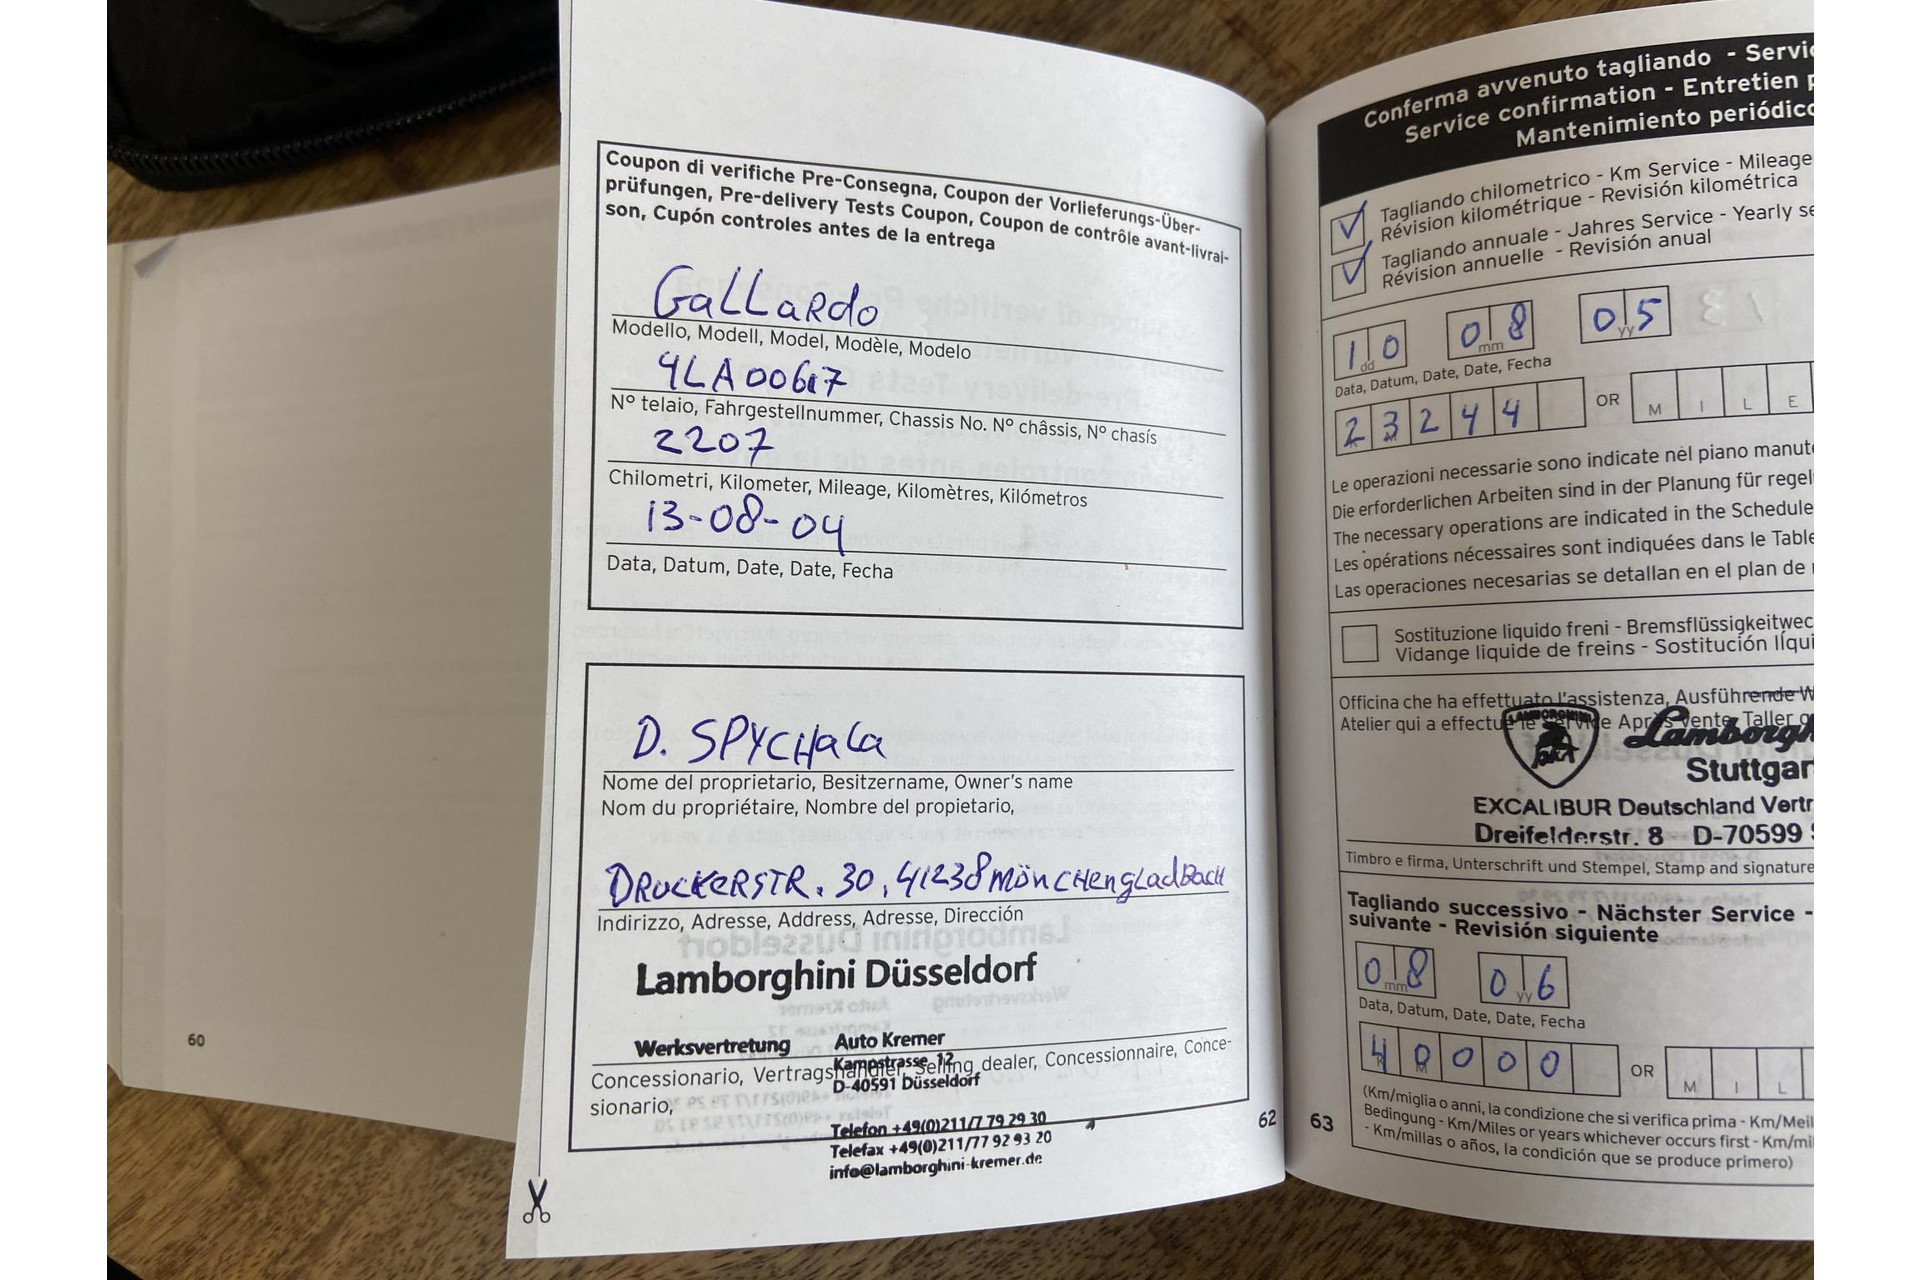 Coupon di verifiche Pre-Consegna, Coupon der Vorlieferungs-Über-
prüfungen, Pre-delivery Tests Coupon, Coupon de contrôle avant-livrai-
son, Cupón controles antes de la entrega
GaLLaRdo
Modello, Modell, Model, Modèle, Modelo
4LA00617
N° telaio, Fahrgestellnummer, Chassis No. N° châssis, N° chasís
2207
Chilometri, Kilometer, Mileage, Kilomètres, Kilómetros
13-08-04
Data, Datum, Date, Date, Fecha
D. SPYCHaLa
Nome del proprietario, Besitzername, Owner's name
Nom du propriétaire, Nombre del propietario,
DRUCKERSTR. 30, 41238 MönCHengLadBaCH
Indirizzo, Adresse, Address, Adresse, Dirección
Lamborghini Düsseldorf
Werksvertretung Auto Kremer
Kampstrasse 12
Concessionario, Vertragshändler, Selling dealer, Concessionnaire, Conce-
D-40591 Düsseldorf
sionario,
Telefon +49(0)211/7 79 29 30
Telefax +49(0)211/77 92 93 20
info@lamborghini-kremer.de
60
62
Conferma avvenuto tagliando - Servic
Service confirmation - Entretien p
Mantenimiento periódico
Tagliando chilometrico - Km Service - Mileage
Révision kilométrique - Revisión kilométrica
Tagliando annuale - Jahres Service - Yearly se
Révision annuelle - Revisión anual
10 08 05
dd mm yy
Data, Datum, Date, Date, Fecha
23244 OR MILE
Le operazioni necessarie sono indicate nel piano manut
Die erforderlichen Arbeiten sind in der Planung für regel
The necessary operations are indicated in the Schedule
Les opérations nécessaires sont indiquées dans le Table
Las operaciones necesarias se detallan en el plan de
Sostituzione liquido freni - Bremsflüssigkeitwec
Vidange liquide de freins - Sostitución líqui
Officina che ha effettuato l'assistenza, Ausführende W
Atelier qui a effectué le service Après Vente, Taller q
LAMBORGHINI
Lamborgh
Stuttgar
EXCALIBUR Deutschland Vertr
Dreifelderstr. 8 D-70599 S
Timbro e firma, Unterschrift und Stempel, Stamp and signature
Tagliando successivo - Nächster Service -
suivante - Revisión siguiente
08 06
mm yy
Data, Datum, Date, Date, Fecha
40000 OR MIL
(Km/miglia o anni, la condizione che si verifica prima - Km/Meil
Bedingung - Km/Miles or years whichever occurs first - Km/mi
- Km/millas o años, la condición que se produce primero)
63